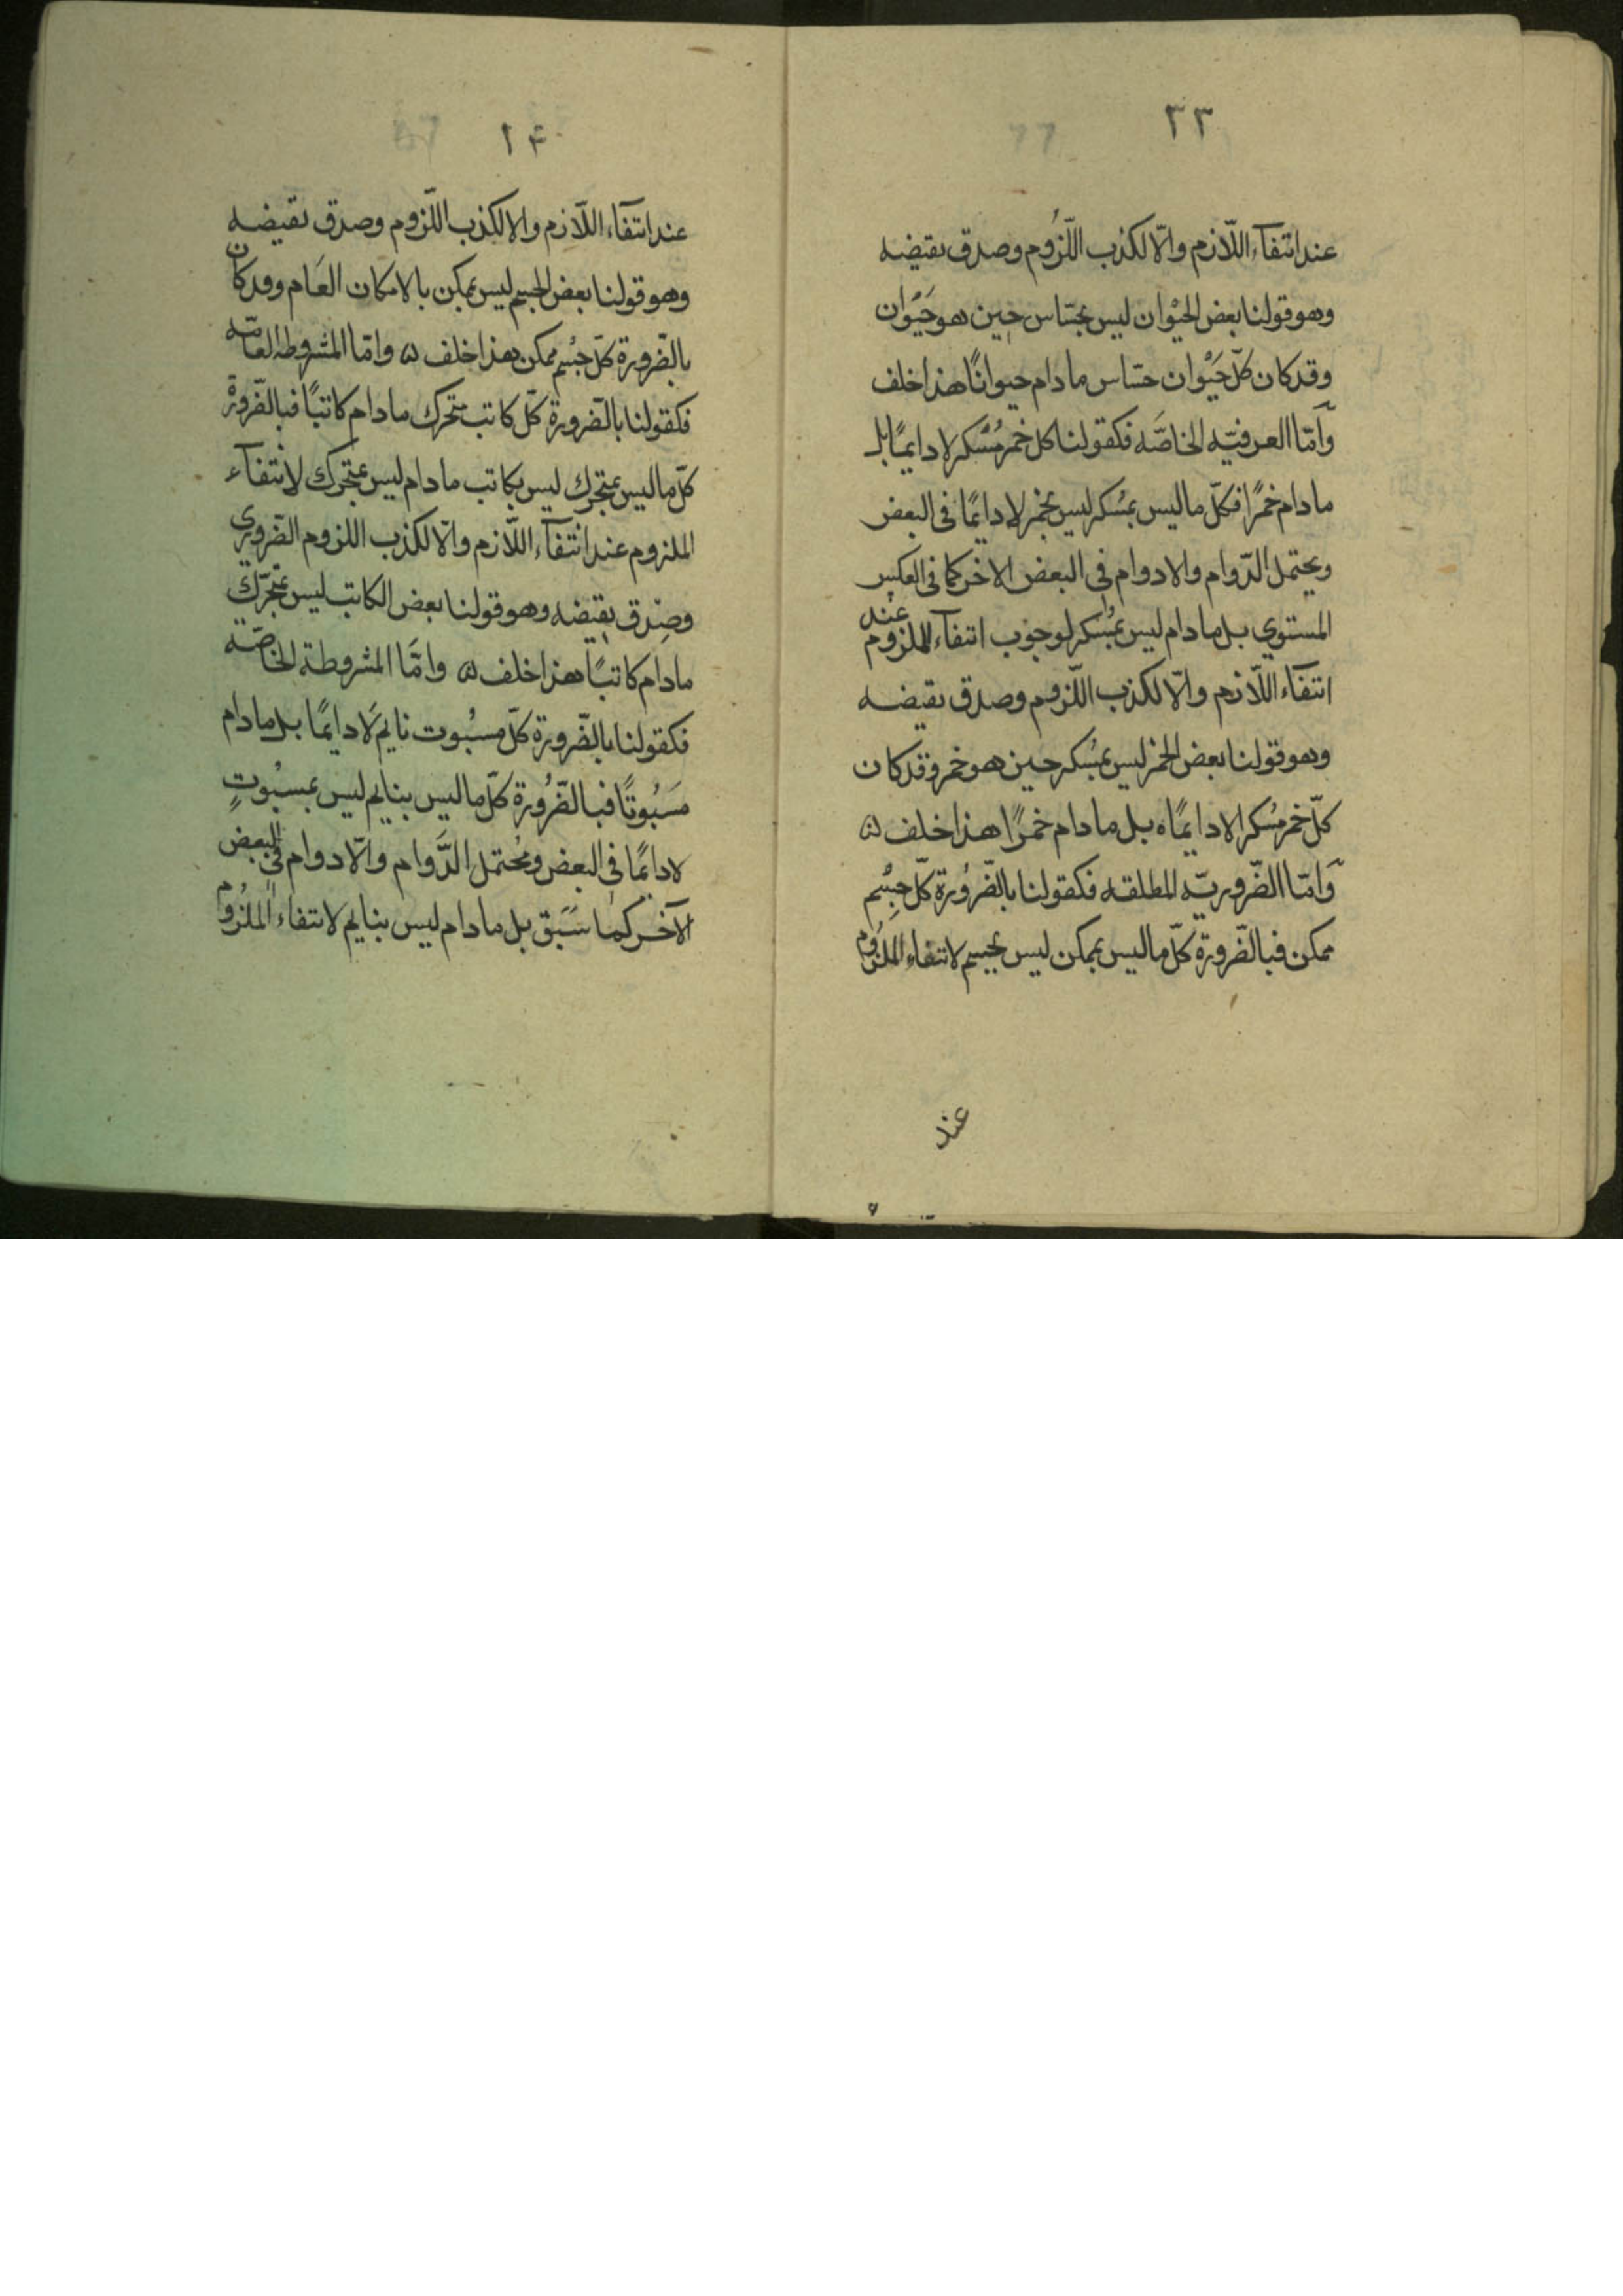 ٣٣
عند انتفآء اللّازم والّا لكذب اللّزُوم وصدق نقيضه
وهو قولنا بعض الحَيْوان ليس بحسّاس حين هو حَيَوان
وقد كان كلّ حَيْوان حسّاس مادام حيوانًا هذا خلف
وَامّا العرفيّه الخاصَّه فكقولنا كل خمر مُسْكر لا دايمًا بل
مادام خمرًا فكلّ ما ليس بمُسكر ليس بخمر لا دايمًا فى البعض
ويحتمل الدّوام والادوام فى البعض الاخر كما فى العكس
المستوي بل مادام ليس بمُسكر لوجوب انتفآء الملزوم عند
انتفآء اللّازم والّا لكذب اللّزوم وصدق نقيضه
وهو قولنا بعض الخمر ليس بمُسكر حين هو خمر وقد كان
كلّ خمر مُسكر الا دايمًا ه بل مادام خمرًا هذا خلف ۵
وَامّا الضّروريّه المطلقه فكقولنا بالضّرُورة كلّ جِسْم
ممكن فبالضّرورة كلّ ما ليس بممكن ليس بجسم لانتفاء الملزُوم
عند
٣۴
عند انتفآء اللّازم والا لكذب اللّزوم وصدق نقيضه
وهو قولنا بعض الجسم ليس بممكن بالامكان العَام وقد كان
بالضّرورة كلّ جسْم ممكن هذا خلف ۵ وامّا المشروطه العامّه
فكقولنا بالضّرورة كلّ كاتب متحرك مادام كاتبًا فبالضّرورة
كلّ ما ليس بمتحرك ليس بكاتب مادام ليس بمتحرك لانتفآء
الملزوم عند انتفآء اللّازم والّا لكذب اللزوم الضّروري
وصِدق نقيضه وهو قولنا بعض الكاتب ليس بمتحرّك
مادام كاتبًا هذا خلف ۵ وامَّا المشروطة الخاصّه
فكقولنا بالضّرورة كلّ مسبُوت نايم لَا دايمًا بل مادام
مسَبُوتًا فبالضّرُورة كلّ ما ليس بنايم ليس بمسبُوتٍ
لا دايمًا فى البعض ومُحتمل الدَّوام والّادوام فى البعض
الآخر كما سَبَق بل مادام ليس بنايم لانتفاء الملزُوم